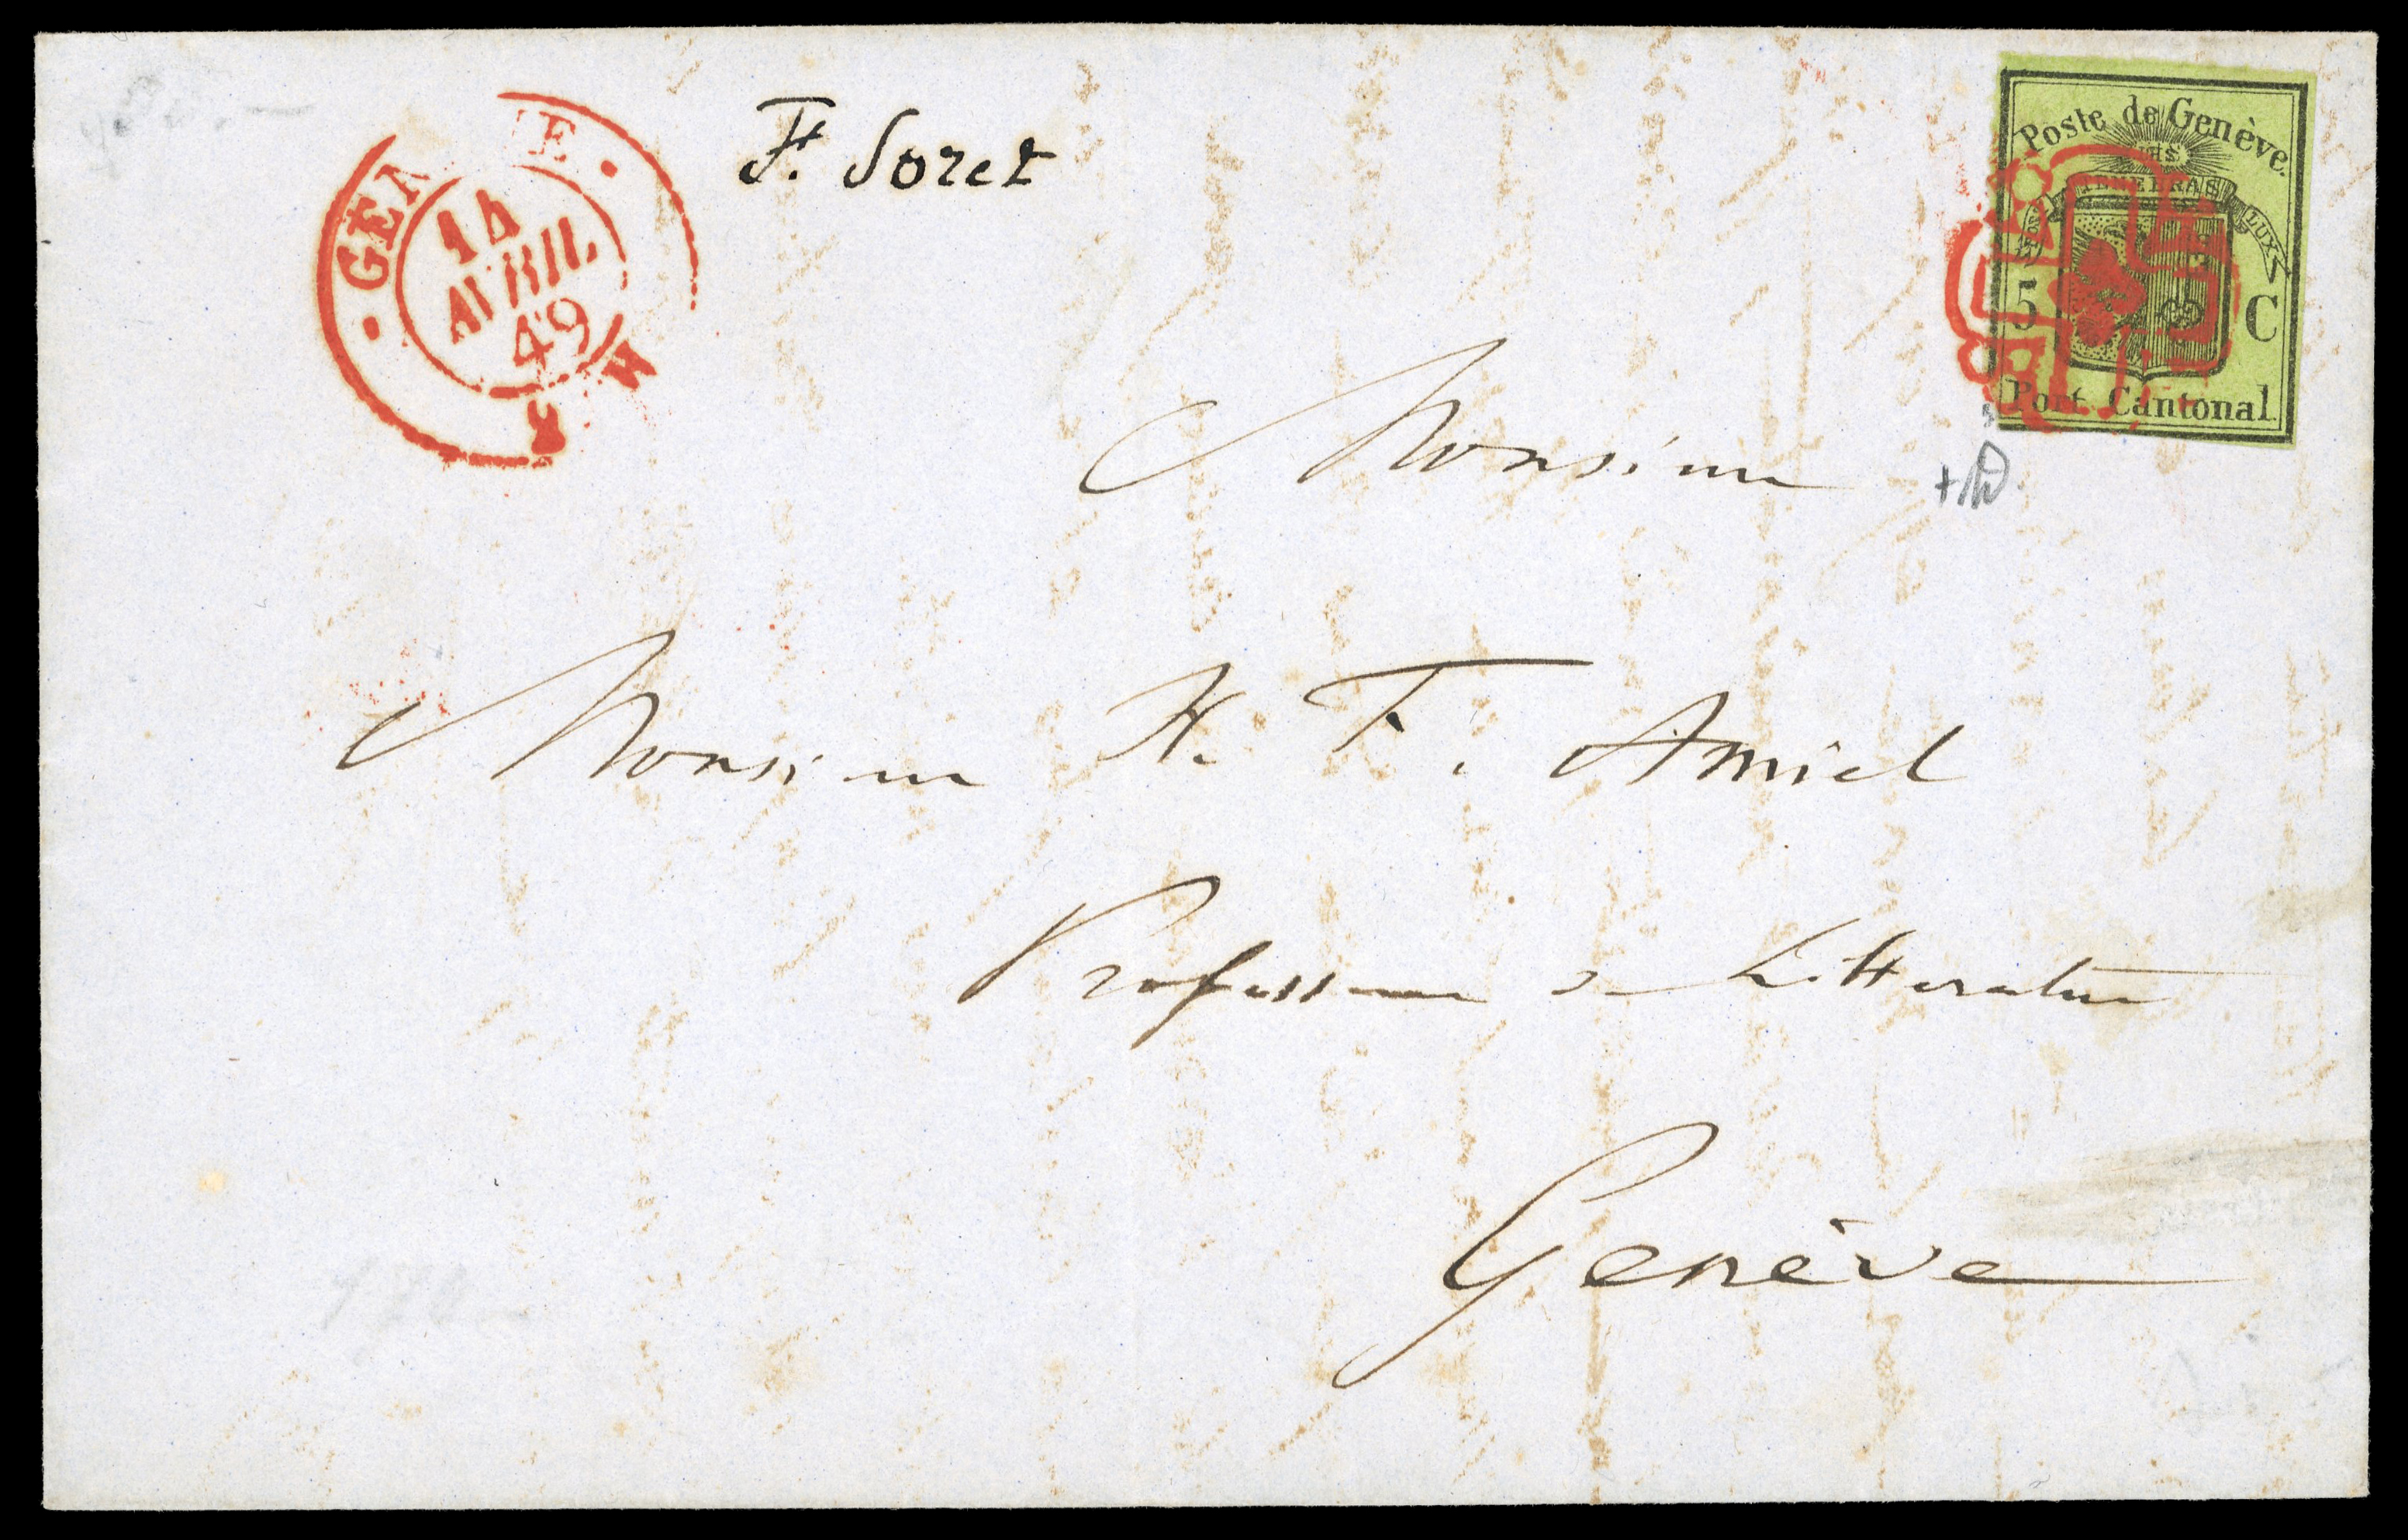 GENEVE
14
AVRIL
49
8 M
F. Soret
Poste de Genève.
POST TENEBRAS LUX
5 C
Port Cantonal.
Monsieur
Monsieur H. F. Amiel
Professeur de Litterature
Genève